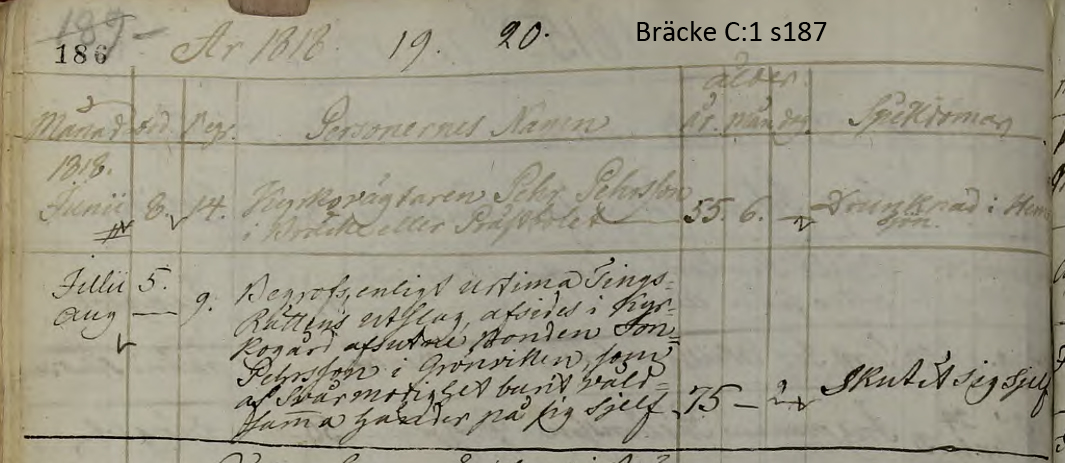 187
Bräcke C:1 s187
186 År 1818. 19. 20.
ålder
Månad död begr. Personernes Namn år. mån dag Sjukdomar
1818.
Junii 8. 14. Kyrkovägtaren Pehr Pehrsson 55 6. Drunknad i
i Bräcke eller Prästbolet sjön.
Julii 5. Begrofs, enligt Urtima Tings=
Aug 9. Rättens utslag, afsides i Kyr=
kogård afsutne Bonden Jon
Pehrsson i Grönviken, som
af Svårmodighet burit våld=
samma händer på sig sjelf 75 — 2 Skutit sig sjelf